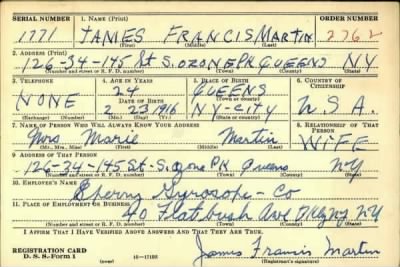 SERIAL NUMBER 1. NAME (Print) ORDER NUMBER
1771 JAMES FRANCIS MARTIN 2762
(First) (Middle) (Last)
2. ADDRESS (Print)
126-34-145 St S. OZONE PK QUEENS NY
(Number and street or R. F. D. number) (Town) (County) (State)
3. TELEPHONE 4. AGE IN YEARS 5. PLACE OF BIRTH 6. COUNTRY OF CITIZENSHIP
NONE 24 QUEENS
DATE OF BIRTH (Town or county)
2 23 1916 NY-CITY U.S.A.
(Exchange) (Number) (Mo.) (Day) (Yr.) (State or country)
7. NAME OF PERSON WHO WILL ALWAYS KNOW YOUR ADDRESS 8. RELATIONSHIP OF THAT PERSON
Mrs Marie Martin WIFE
(Mr., Mrs., Miss) (First) (Middle) (Last)
9. ADDRESS OF THAT PERSON
126-34-145 St-S. Ozone Pk Queens NY
(Number and street or R. F. D. number) (Town) (County) (State)
10. EMPLOYER'S NAME
Sperry Gyroscope-Co
11. PLACE OF EMPLOYMENT OR BUSINESS
40 Flatbush Ave NY
(Number and street or R. F. D. number) (Town) (County) (State)
I AFFIRM THAT I HAVE VERIFIED ABOVE ANSWERS AND THAT THEY ARE TRUE.
REGISTRATION CARD
D. S. S. Form 1 (over) 16-17105
James Francis Martin
(Registrant's signature)